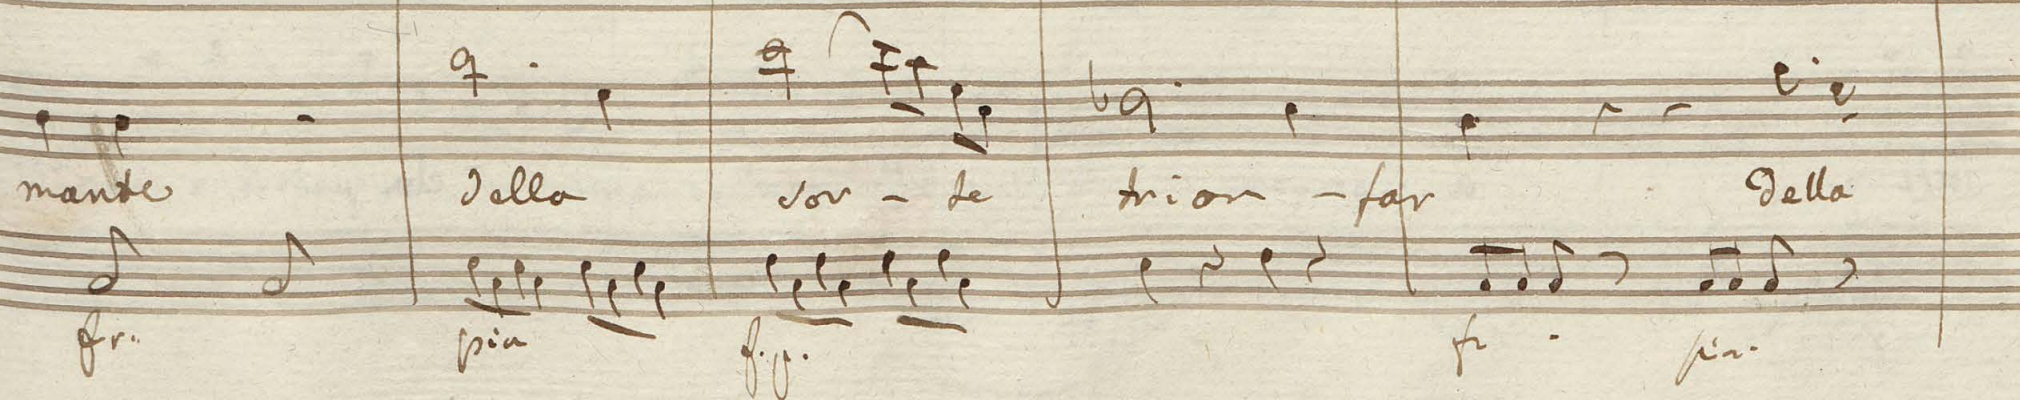 mante della sor - te trion - far della
fr. pia f. p. fr. pia.